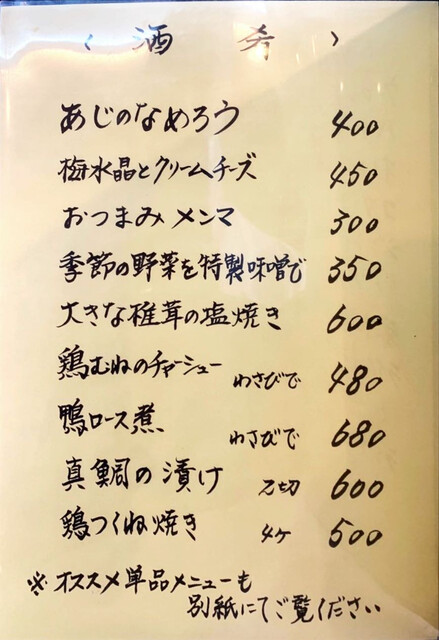 〈酒肴〉
あじのなめろう 400
梅水晶とクリームチーズ 450
おつまみメンマ 300
季節の野菜を特製味噌で 350
大きな椎茸の塩焼き 600
鶏むねのチャーシュー わさびで 480
鴨ロース煮 わさびで 680
真鯛の漬け 五切 600
鶏つくね焼き 4ケ 500
※オススメ単品メニューも
別紙にてご覧ください